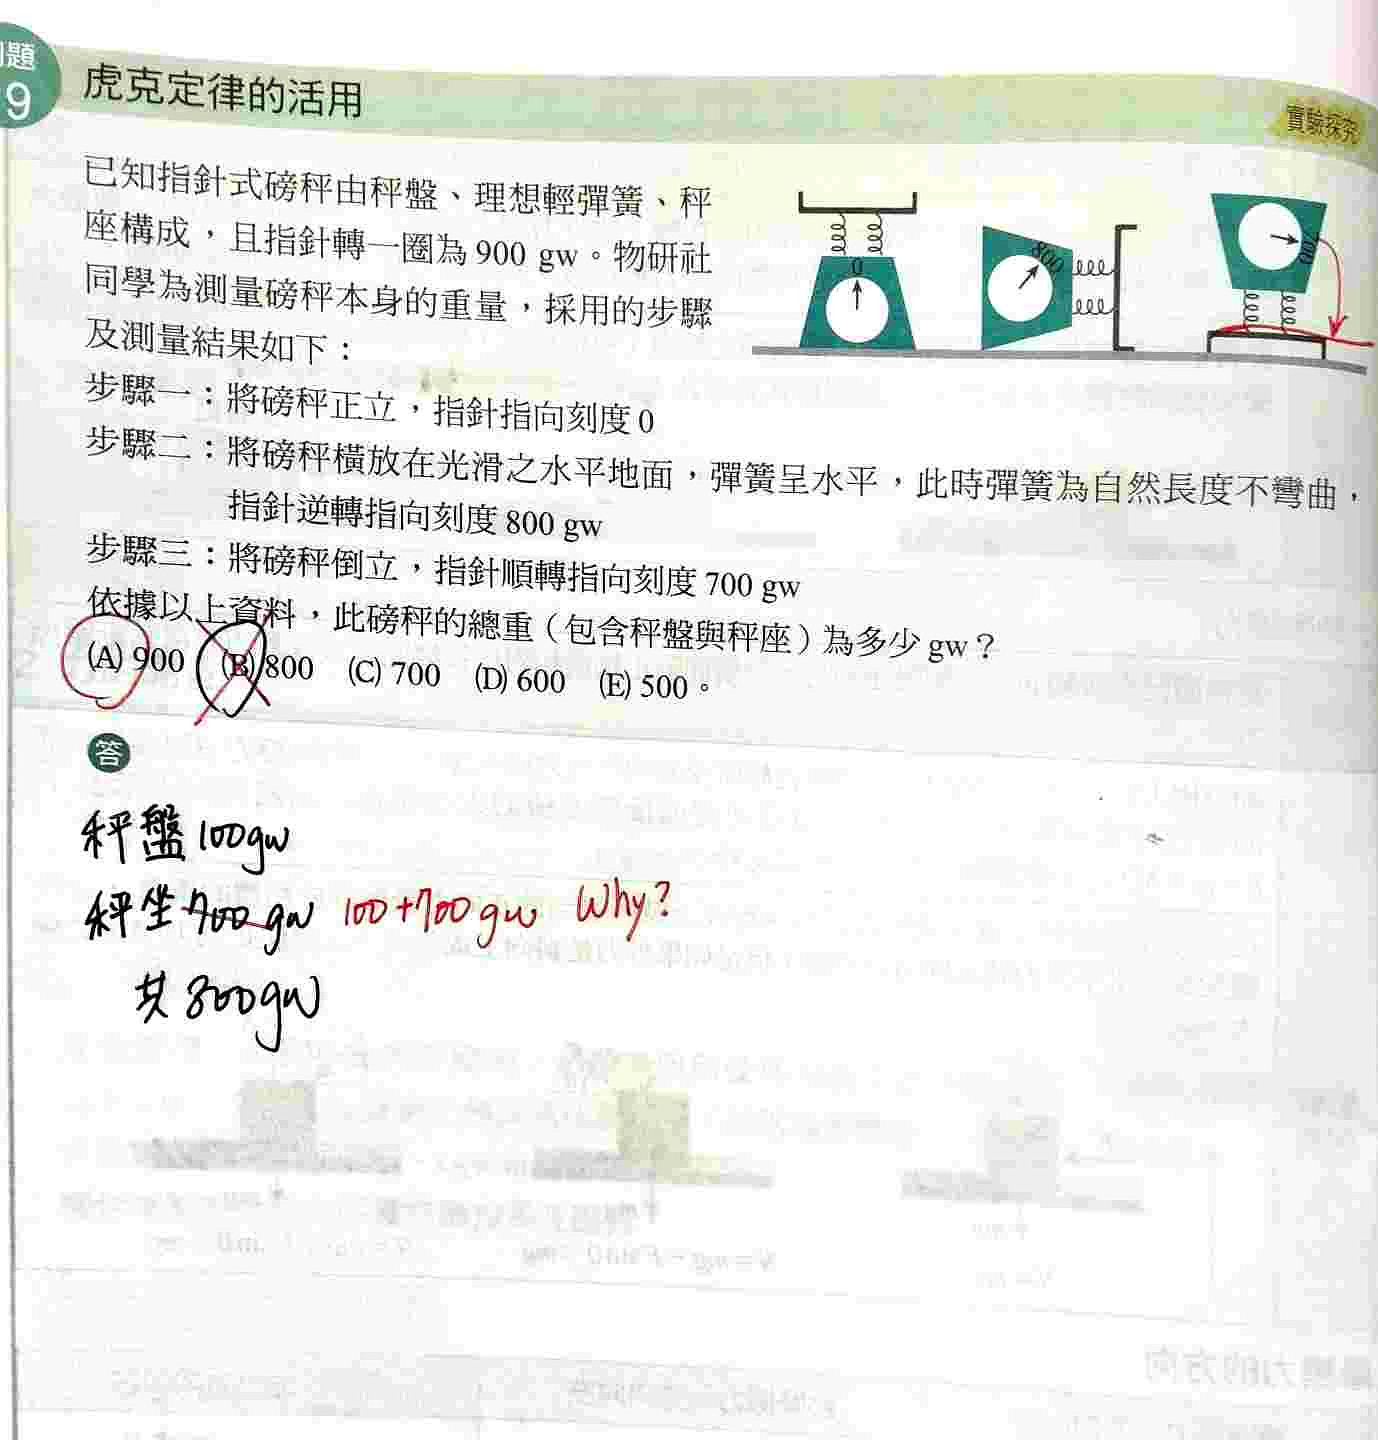 題
9
虎克定律的活用
實驗探究
已知指針式磅秤由秤盤、理想輕彈簧、秤
座構成，且指針轉一圈為 900 gw。物研社
同學為測量磅秤本身的重量，採用的步驟
及測量結果如下：
0
800
700
步驟一：將磅秤正立，指針指向刻度 0
步驟二：將磅秤橫放在光滑之水平地面，彈簧呈水平，此時彈簧為自然長度不彎曲，
指針逆轉指向刻度 800 gw
步驟三：將磅秤倒立，指針順轉指向刻度 700 gw
依據以上資料，此磅秤的總重（包含秤盤與秤座）為多少 gw？
(A) 900 (B) 800 (C) 700 (D) 600 (E) 500。
答
秤盤 100gw
秤坐 700 gw 100+700 gw Why?
共 800gw